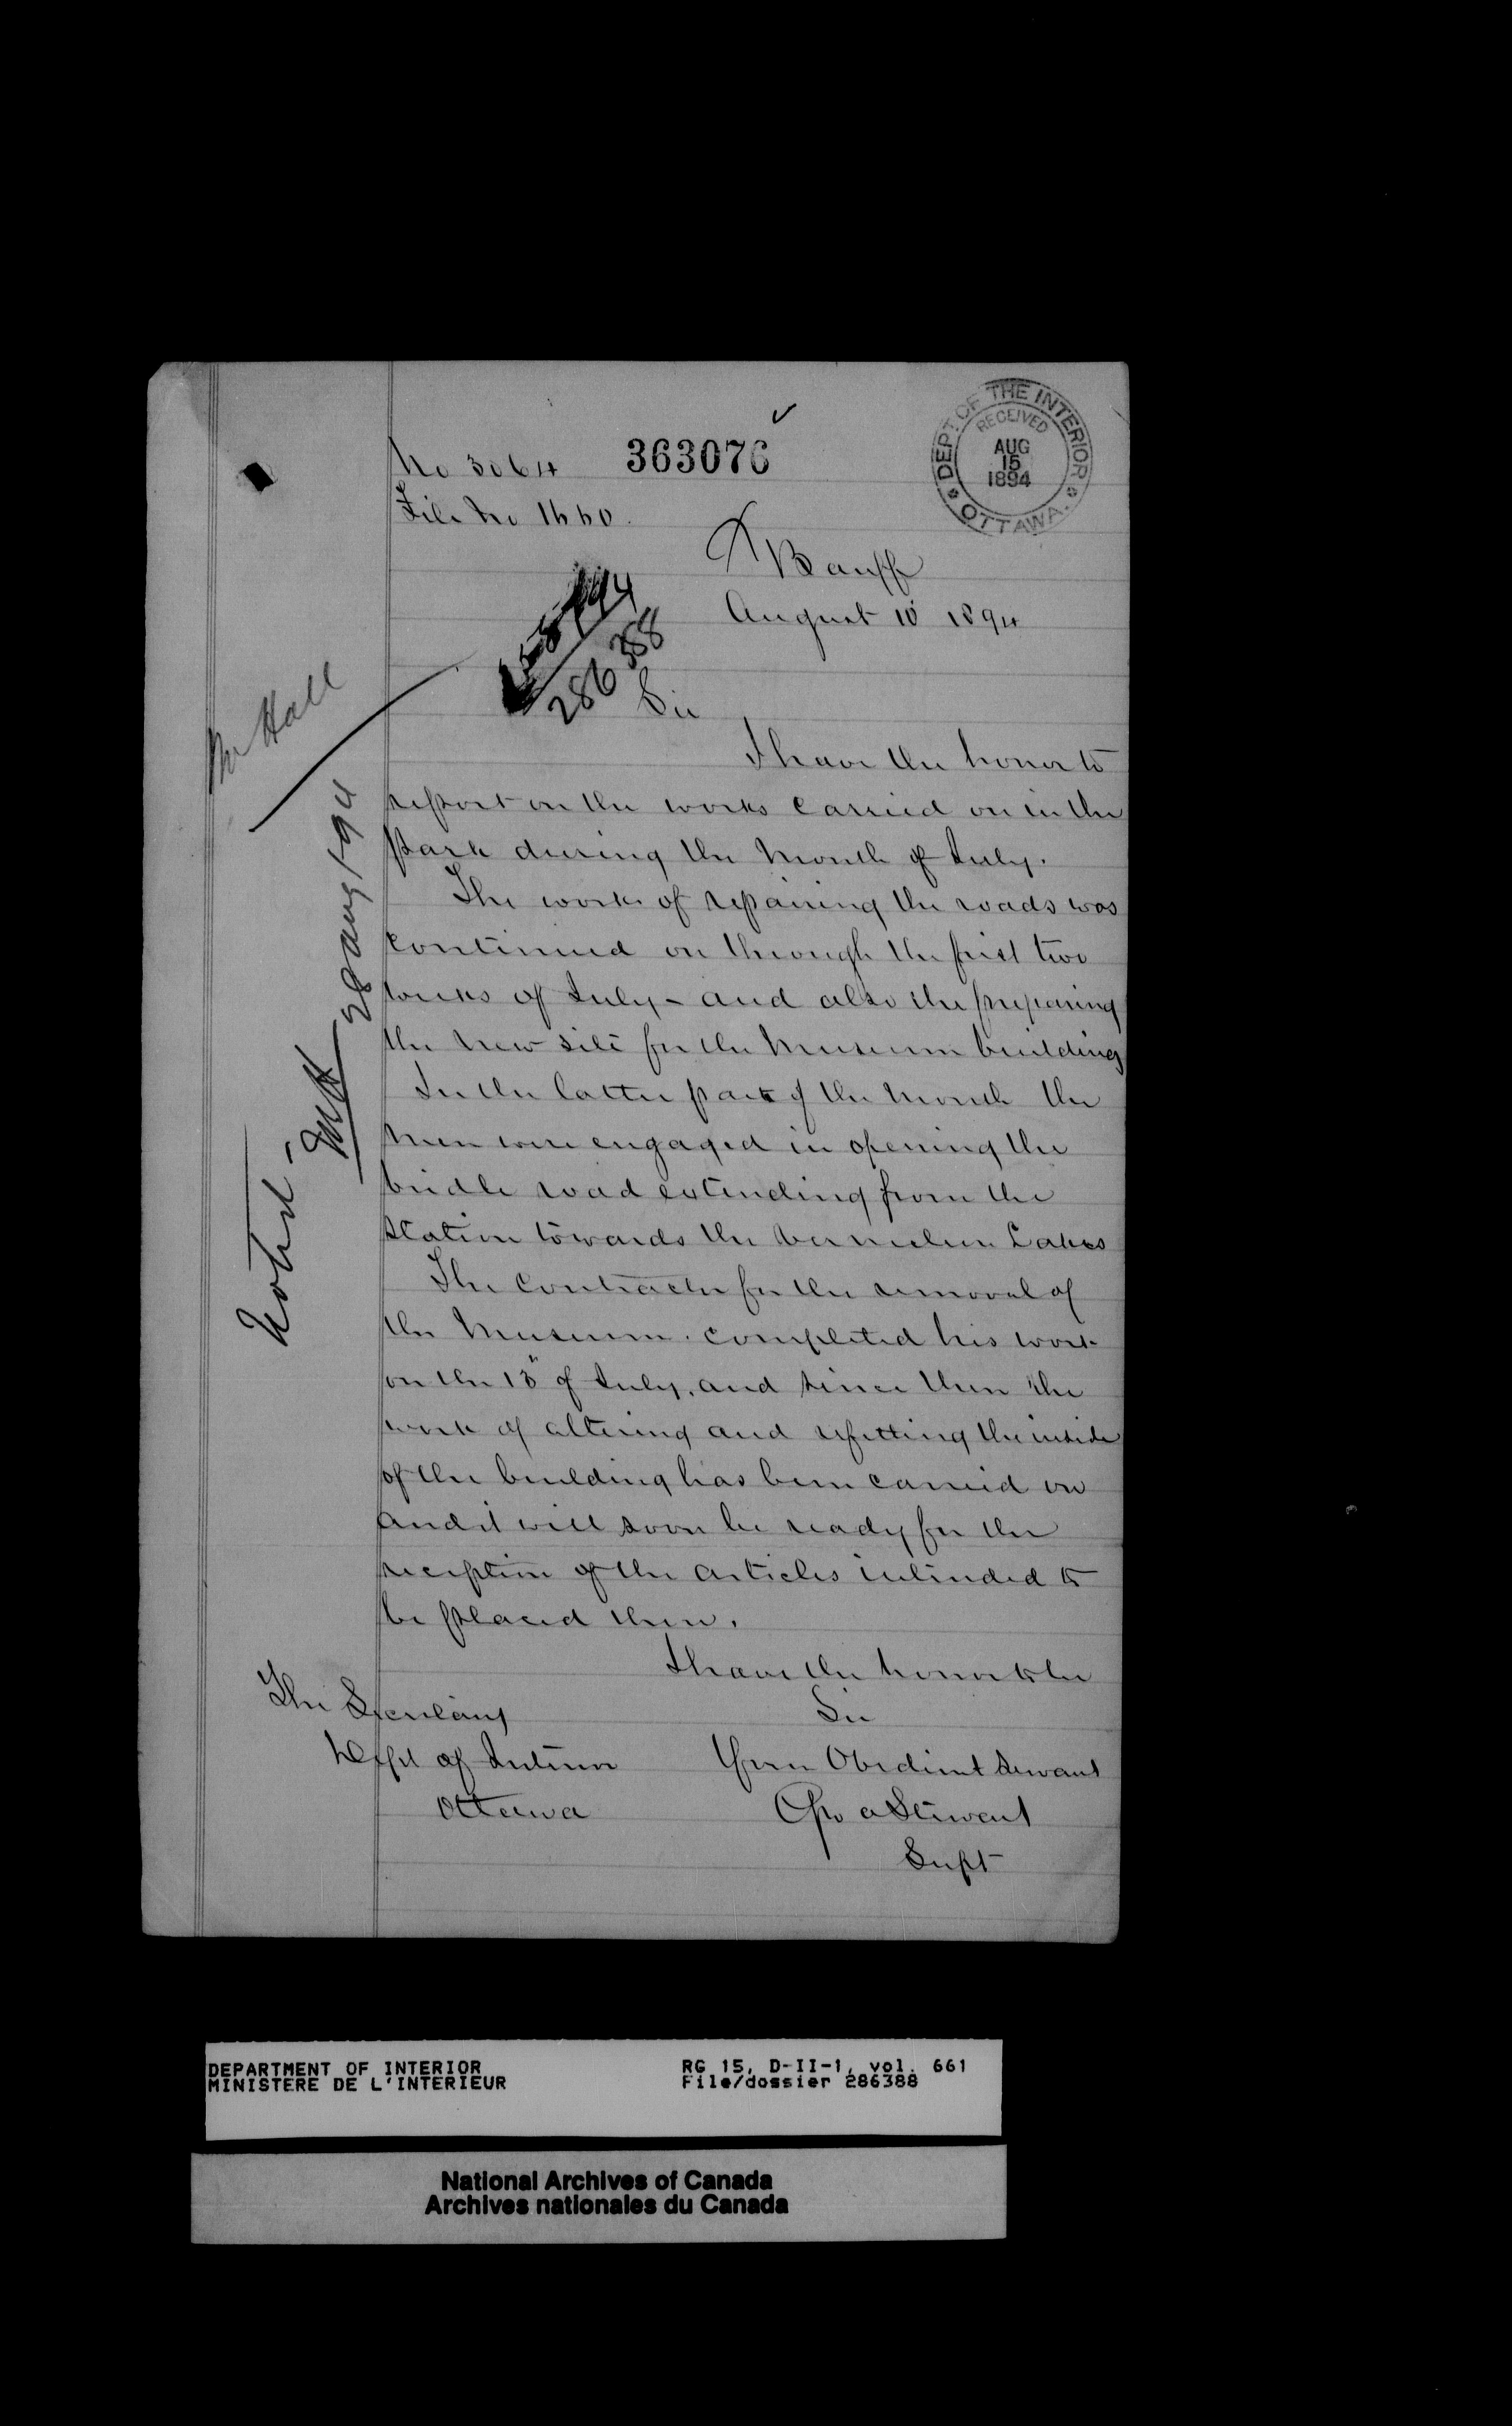 363076
DEPT. OF THE INTERIOR
RECEIVED
AUG
15
1894
OTTAWA.
No 3064
File No 1660.
Banff
August 10 1894
286388
Mr Hall
28 Aug/94
Noted
Sir
I have the honor to
report on the works carried on in the
Park during the Month of July.
The work of repairing the roads was
continued on through the first two
weeks of July - and also the preparing
the new site for the Museum building
In the latter part of the Month the
men were engaged in opening the
bridle road extending from the
station towards the Vermilion Lakes
The Contractor for the removal of
the Museum completed his work
on the 13" of July, and since then the
work of altering and refitting the inside
of the building has been carried on
and it will soon be ready for the
reception of the articles intended to
be placed there.
I have the honor to be
Sir
Your Obedient Servant
Geo A Stewart
Supt
The Secretary
Dept of Interior
Ottawa
DEPARTMENT OF INTERIOR
MINISTERE DE L'INTERIEUR
RG 15, D-II-1, vol. 661
File/dossier 286388
National Archives of Canada
Archives nationales du Canada